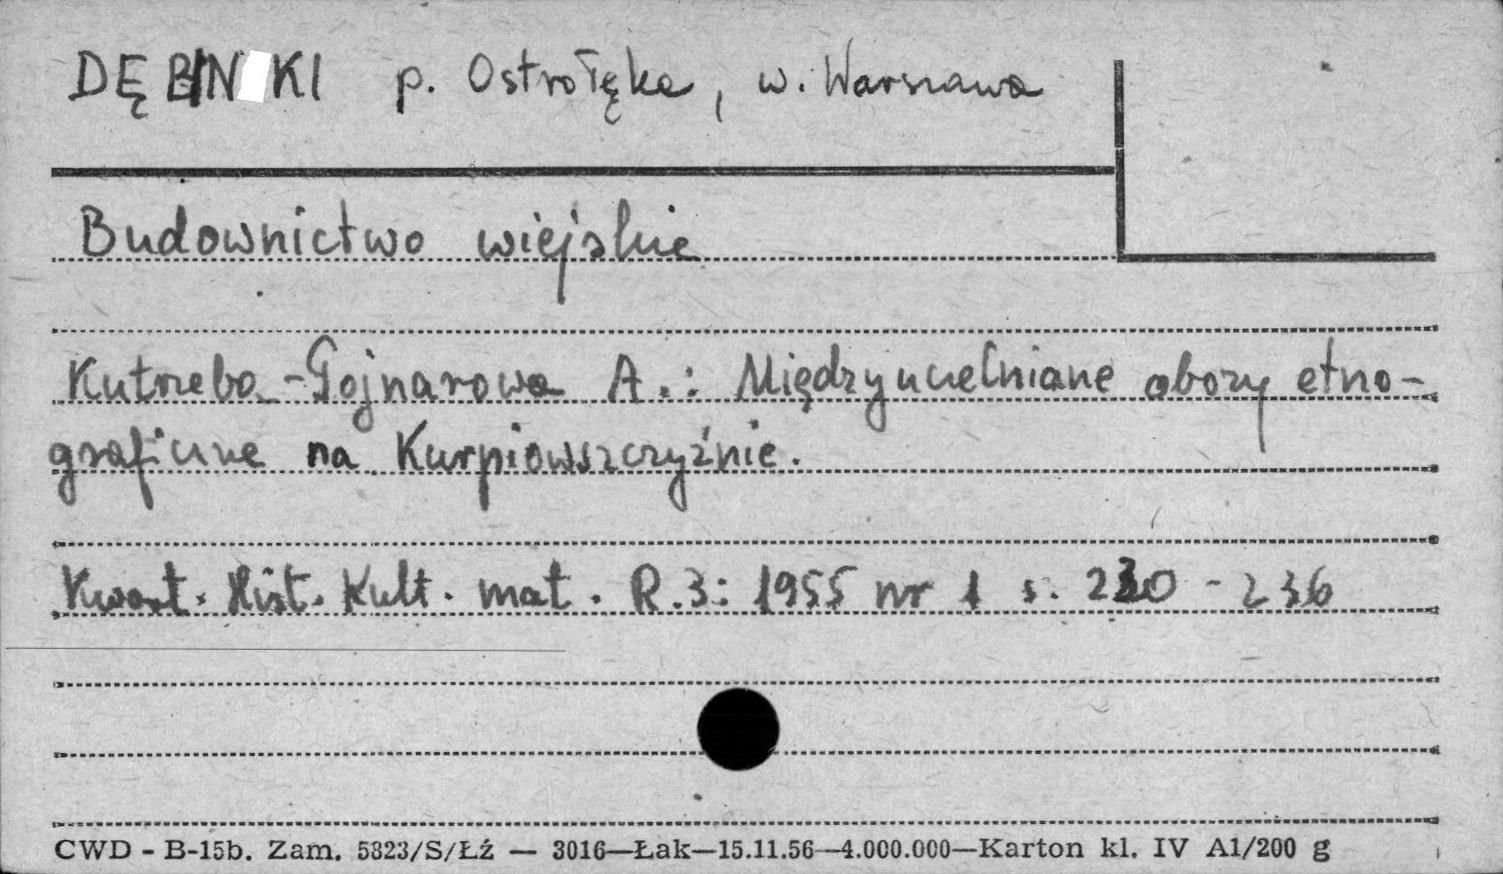 DĘBNKI p. Ostrołęka, w. Warszawa
Budownictwo wiejskie
Kutrzeba-Pojnarowa A.: Międzyuczelniane obozy etno-
graficzne na Kurpiowszczyźnie.
Kwart. Hist. Kult. mat. R.3: 1955 nr 1 s. 230-236
CWD - B-15b. Zam. 5323/S/Łź — 3016—Łak—15.11.56—4.000.000—Karton kl. IV A1/200 g